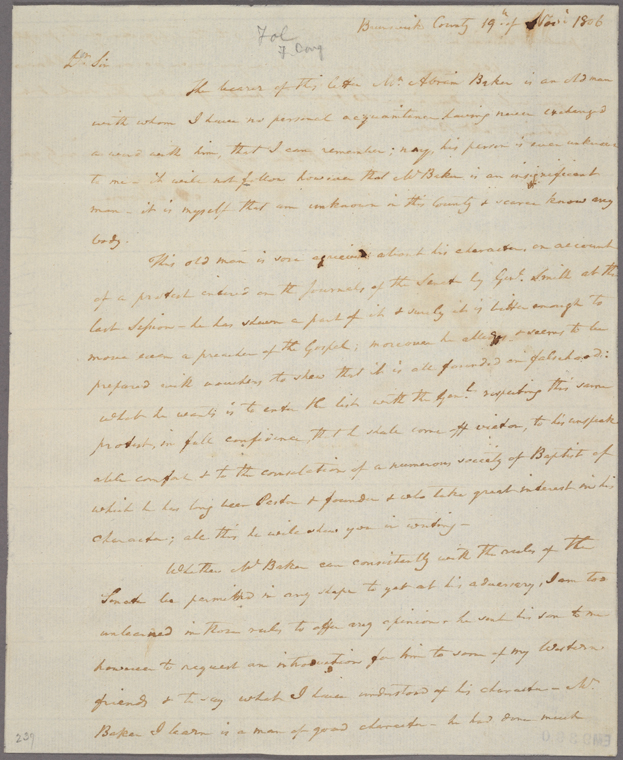 Fol
7 Dory
Brunswick County 19th of Novr 1806
Dr Sir
The bearer of this letter Mr. Abram Baker is an old man
with whom I have no personal acquaintance having never exchanged
a word with him, that I can remember; nay, his person is even unknown
to me - it will not follow however that Mr Baker is an insignificant
man - it is myself that am unknown in this County & scarce know any
body.
This old man is sore about his character, on account
of a protest entered on the Journals of the Senate by Genl. Smith at the
last Session - he has shewn a part of it & surely it is bitter enough to
move even a preacher of the Gospel; moreover he alleges & seems to be
prepared with vouchers to shew that it is all founded on falsehood:
what he wants is to enter the list with the Genl. respecting this same
protest, in full confidence, that he shall come off victor, to his unspeak
able comfort & to the consolation of a numerous society of Baptist of
which he has long been Pastor & founder & who take great interest in his
character; all this he will shew you in writing -
Whether Mr Baker can consistently with the rules of the
Senate be permitted in any shape to get at his adversary, I am too
unlearned in those rules to offer any opinion - he sent his son to me
however to request an introduction for him to some of my Western
friends & to say what I have understood of his character - Mr.
Baker I learn is a man of good character - he had done much
239